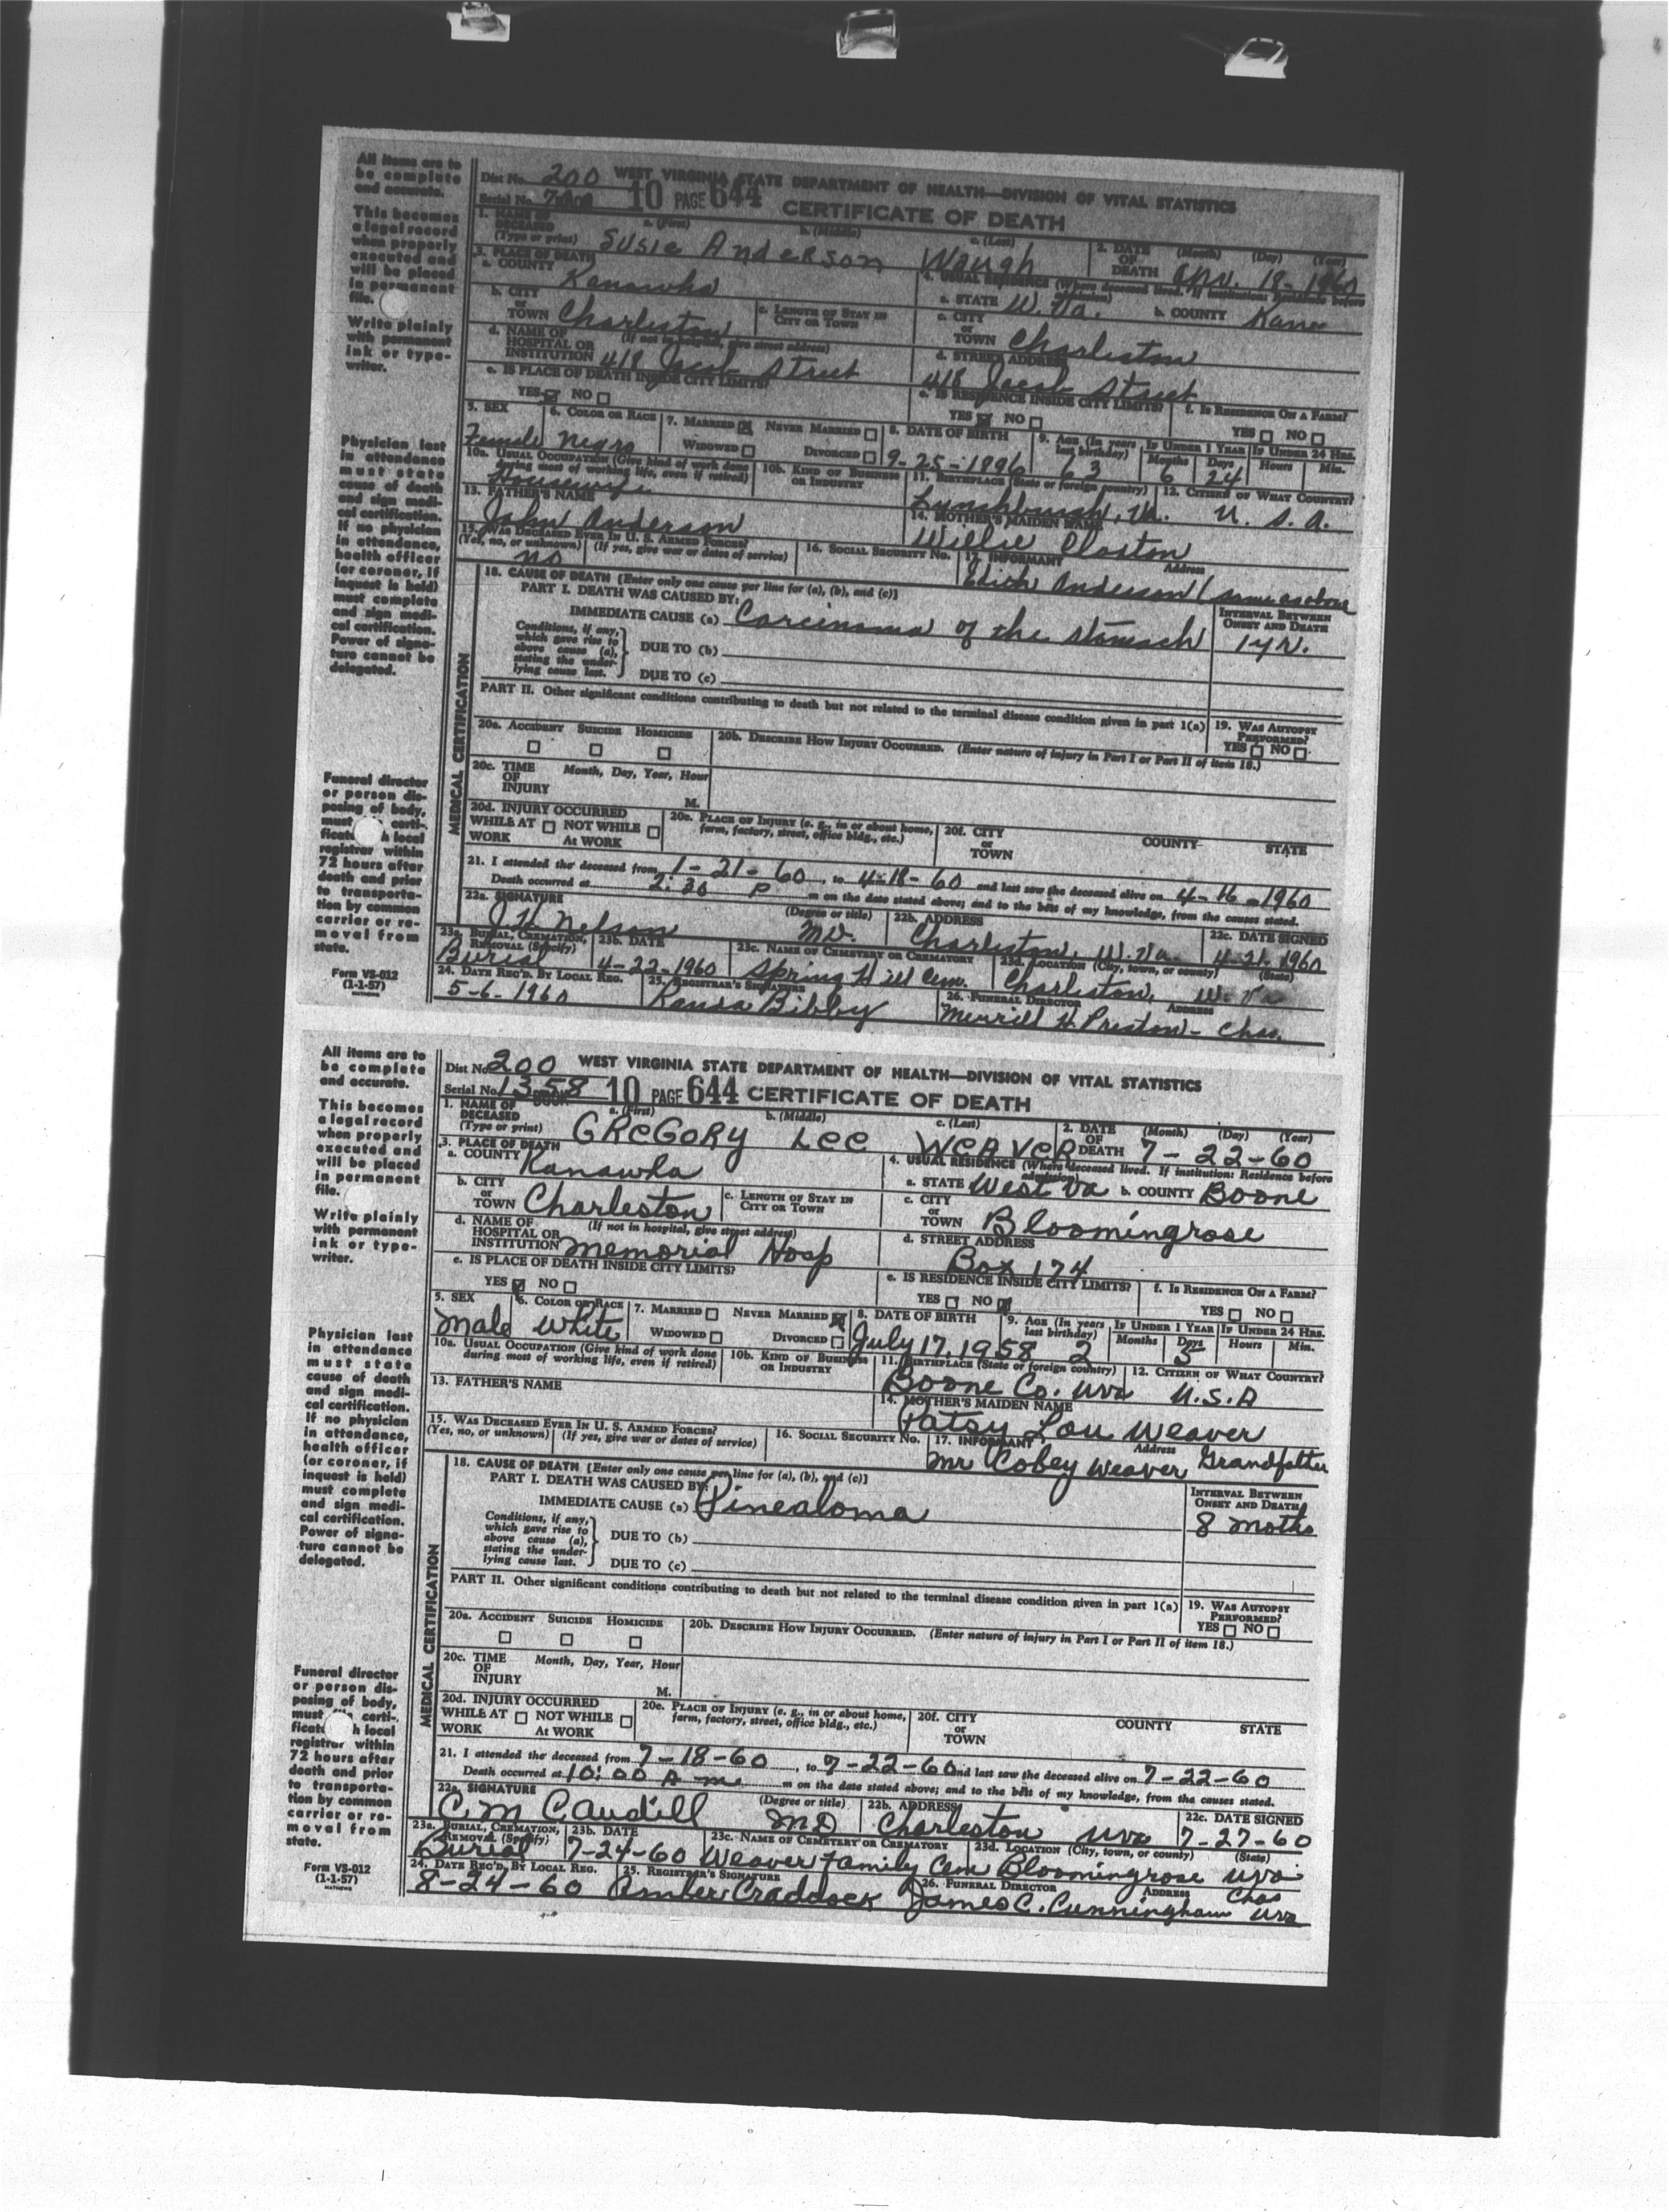 All items are to
be complete
and accurate.
This becomes
a legal record
when properly
executed and
will be placed
in permanent
file.
Write plainly
with permanent
ink or type-
writer.
Physician last
in attendance
must state
cause of death
and sign medi-
cal certification.
If no physician
in attendance,
health officer
(or coroner, if
inquest is held)
must complete
and sign medi-
cal certification.
Power of signa-
ture cannot be
delegated.
Funeral director
or person dis-
posing of body,
must certi-
ficate h local
registrar within
72 hours after
death and prior
to transporta-
tion by common
carrier or re-
moval from
state.
Form VS-012
(1-1-57)
MATHEWS
Dist No. 200 WEST VIRGINIA STATE DEPARTMENT OF HEALTH—DIVISION OF VITAL STATISTICS
Serial No. 10 PAGE 644 CERTIFICATE OF DEATH
1. NAME OF DECEASED (Type or print) a. (First) b. (Middle) c. (Last) Susie Anderson Waugh
2. DATE OF DEATH (Month) (Day) (Year) 18-1960
3. PLACE OF DEATH
a. COUNTY Kanawha
4. USUAL RESIDENCE (Where deceased lived. If institution: Residence before admission)
a. STATE W. Va. b. COUNTY Kana
b. CITY or TOWN Charleston c. LENGTH OF STAY IN CITY OR TOWN
c. CITY or TOWN Charleston
d. NAME OF HOSPITAL OR INSTITUTION (If not in hospital, give street address) 418 Jacob Street
d. STREET ADDRESS 418 Jacob Street
e. IS PLACE OF DEATH INSIDE CITY LIMITS? YES NO
e. IS RESIDENCE INSIDE CITY LIMITS? YES NO f. IS RESIDENCE ON A FARM? YES NO
5. SEX Female 6. COLOR OR RACE Negro 7. MARRIED NEVER MARRIED WIDOWED DIVORCED
8. DATE OF BIRTH 9-25-1996 9. AGE (In years last birthday) 63 IF UNDER 1 YEAR Months 6 Days 24 IF UNDER 24 HRS. Hours Min.
10a. USUAL OCCUPATION (Give kind of work done during most of working life, even if retired) Housewife 10b. KIND OF BUSINESS OR INDUSTRY
11. BIRTHPLACE (State or foreign country) Lynchburgh, Va. 12. CITIZEN OF WHAT COUNTRY? U. S. A.
13. FATHER'S NAME John Anderson
14. MOTHER'S MAIDEN NAME Willie
15. WAS DECEASED EVER IN U. S. ARMED FORCES? (Yes, no, or unknown) (If yes, give war or dates of service) no
16. SOCIAL SECURITY NO. 17. INFORMANT Address Edith Anderson (same as above
18. CAUSE OF DEATH [Enter only one cause per line for (a), (b), and (c)]
PART I. DEATH WAS CAUSED BY:
INTERVAL BETWEEN ONSET AND DEATH
IMMEDIATE CAUSE (a) Carcinoma of the stomach 1 yr.
Conditions, if any, which gave rise to above cause (a), stating the under-lying cause last.
DUE TO (b)
DUE TO (c)
PART II. Other significant conditions contributing to death but not related to the terminal disease condition given in part 1(a)
19. WAS AUTOPSY PERFORMED? YES NO
MEDICAL CERTIFICATION
20a. ACCIDENT SUICIDE HOMICIDE
20b. DESCRIBE HOW INJURY OCCURRED. (Enter nature of injury in Part I or Part II of item 18.)
20c. TIME OF INJURY Month, Day, Year, Hour M.
20d. INJURY OCCURRED WHILE AT WORK NOT WHILE At WORK
20e. PLACE OF INJURY (e. g., in or about home, farm, factory, street, office bldg., etc.)
20f. CITY or TOWN COUNTY STATE
21. I attended the deceased from 1-21-60, to 4-18-60 and last saw the deceased alive on 4-16-1960
Death occurred at 2:30 P m on the date stated above; and to the best of my knowledge, from the causes stated.
22a. SIGNATURE J.H. Nelson (Degree or title) MD. 22b. ADDRESS Charleston, W. Va. 22c. DATE SIGNED 4-21-1960
23a. BURIAL, CREMATION, REMOVAL (Specify) Burial 23b. DATE 4-22-1960 23c. NAME OF CEMETERY OR CREMATORY Spring Hill Cem. 23d. LOCATION (City, town, or county) (State) Charleston, W. Va
24. DATE REC'D. BY LOCAL REG. 5-6-1960 25. REGISTRAR'S SIGNATURE Bibby 26. FUNERAL DIRECTOR Address Merrill H. Preston - Chas.
All items are to
be complete
and accurate.
This becomes
a legal record
when properly
executed and
will be placed
in permanent
file.
Write plainly
with permanent
ink or type-
writer.
Physician last
in attendance
must state
cause of death
and sign medi-
cal certification.
If no physician
in attendance,
health officer
(or coroner, if
inquest is held)
must complete
and sign medi-
cal certification.
Power of signa-
ture cannot be
delegated.
Funeral director
or person dis-
posing of body,
must certi-
ficate h local
registrar within
72 hours after
death and prior
to transporta-
tion by common
carrier or re-
moval from
state.
Form VS-012
(1-1-57)
MATHEWS
Dist No. 200 WEST VIRGINIA STATE DEPARTMENT OF HEALTH—DIVISION OF VITAL STATISTICS
Serial No. 1358 BOOK 10 PAGE 644 CERTIFICATE OF DEATH
1. NAME OF DECEASED (Type or print) a. (First) b. (Middle) c. (Last) GREGORY LEE WEAVER
2. DATE OF DEATH (Month) (Day) (Year) 7-22-60
3. PLACE OF DEATH
a. COUNTY Kanawha
4. USUAL RESIDENCE (Where deceased lived. If institution: Residence before admission)
a. STATE West Va b. COUNTY Boone
b. CITY or TOWN Charleston c. LENGTH OF STAY IN CITY OR TOWN
c. CITY or TOWN Bloomingrose
d. NAME OF HOSPITAL OR INSTITUTION (If not in hospital, give street address) Memorial Hosp
d. STREET ADDRESS Box 174
e. IS PLACE OF DEATH INSIDE CITY LIMITS? YES NO
e. IS RESIDENCE INSIDE CITY LIMITS? YES NO f. IS RESIDENCE ON A FARM? YES NO
5. SEX Male 6. COLOR OR RACE White 7. MARRIED NEVER MARRIED WIDOWED DIVORCED
8. DATE OF BIRTH July 17, 1958 9. AGE (In years last birthday) 2 IF UNDER 1 YEAR Months Days 5 IF UNDER 24 HRS. Hours Min.
10a. USUAL OCCUPATION (Give kind of work done during most of working life, even if retired) 10b. KIND OF BUSINESS OR INDUSTRY
11. BIRTHPLACE (State or foreign country) Boone Co. WVa 12. CITIZEN OF WHAT COUNTRY? U.S.A
13. FATHER'S NAME
14. MOTHER'S MAIDEN NAME Patsy Lou Weaver
15. WAS DECEASED EVER IN U. S. ARMED FORCES? (Yes, no, or unknown) (If yes, give war or dates of service)
16. SOCIAL SECURITY NO. 17. INFORMANT Address Mr Cobey Weaver Grandfather
18. CAUSE OF DEATH [Enter only one cause per line for (a), (b), and (c)]
PART I. DEATH WAS CAUSED BY:
INTERVAL BETWEEN ONSET AND DEATH
IMMEDIATE CAUSE (a) Pinealoma 8 moths
Conditions, if any, which gave rise to above cause (a), stating the under-lying cause last.
DUE TO (b)
DUE TO (c)
PART II. Other significant conditions contributing to death but not related to the terminal disease condition given in part 1(a)
19. WAS AUTOPSY PERFORMED? YES NO
MEDICAL CERTIFICATION
20a. ACCIDENT SUICIDE HOMICIDE
20b. DESCRIBE HOW INJURY OCCURRED. (Enter nature of injury in Part I or Part II of item 18.)
20c. TIME OF INJURY Month, Day, Year, Hour M.
20d. INJURY OCCURRED WHILE AT WORK NOT WHILE At WORK
20e. PLACE OF INJURY (e. g., in or about home, farm, factory, street, office bldg., etc.)
20f. CITY or TOWN COUNTY STATE
21. I attended the deceased from 7-18-60, to 7-22-60 and last saw the deceased alive on 7-22-60
Death occurred at 10:00 A m m on the date stated above; and to the best of my knowledge, from the causes stated.
22a. SIGNATURE C.M Caudill (Degree or title) MD 22b. ADDRESS Charleston WVa 22c. DATE SIGNED 7-27-60
23a. BURIAL, CREMATION, REMOVAL (Specify) Burial 23b. DATE 7-24-60 23c. NAME OF CEMETERY OR CREMATORY Weaver Family Cem 23d. LOCATION (City, town, or county) (State) Bloomingrose WVa
24. DATE REC'D. BY LOCAL REG. 8-24-60 25. REGISTRAR'S SIGNATURE Amber Craddock 26. FUNERAL DIRECTOR ADDRESS James C. Cunningham Chas WVa